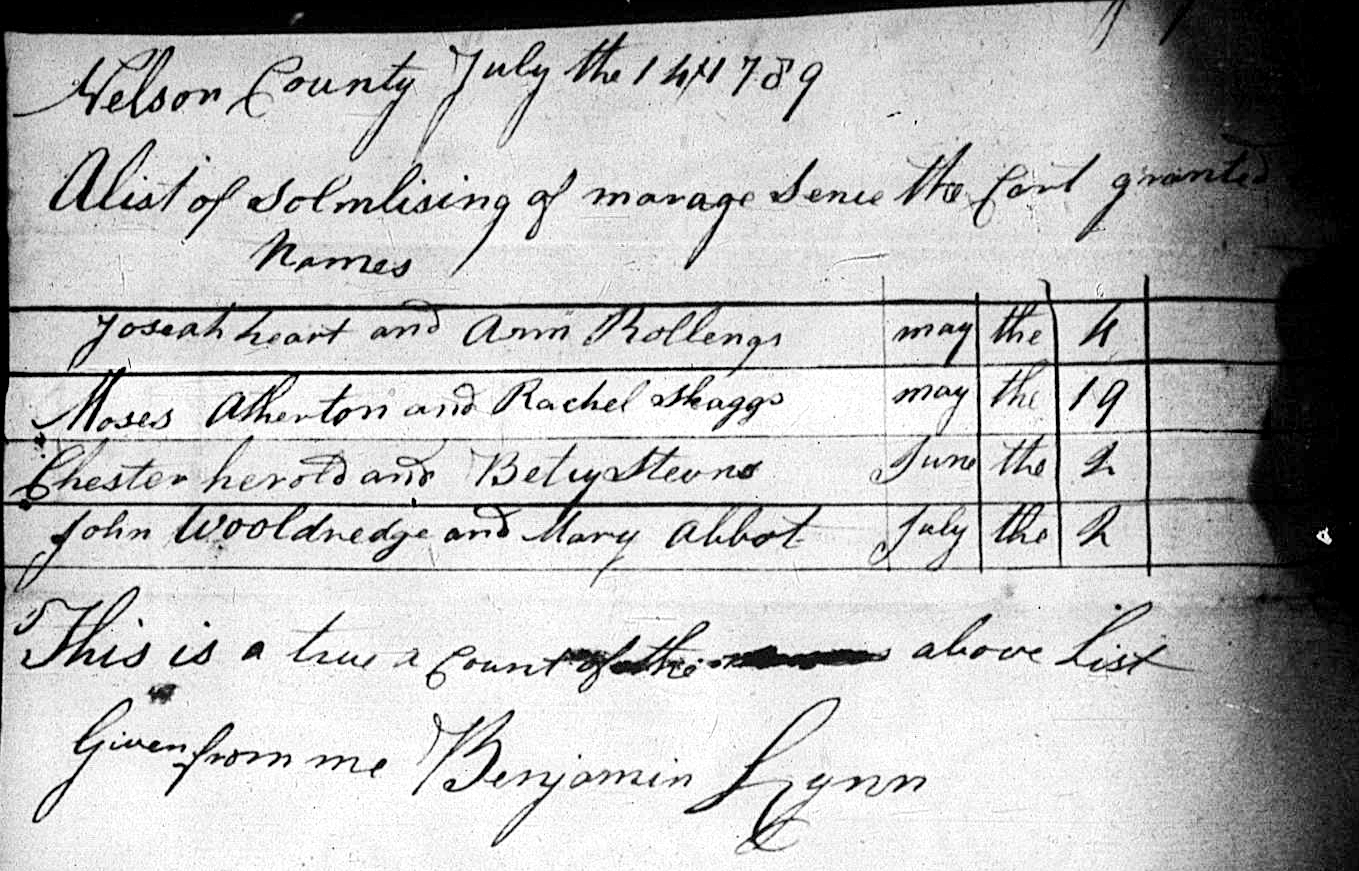 Nelson County July the 14 1789
A list of Solmlising of marage Sence the Cort granted
Names
Joseah heart and Ann Rollengs may the 4
Moses Atherton and Rachel Skaggs may the 19
Chester herold and Betsy Stevns June the 2
John Wooldredge and Mary Abbot July the 2
This is a true a Count of the above List
Given from me Benjamin Lynn